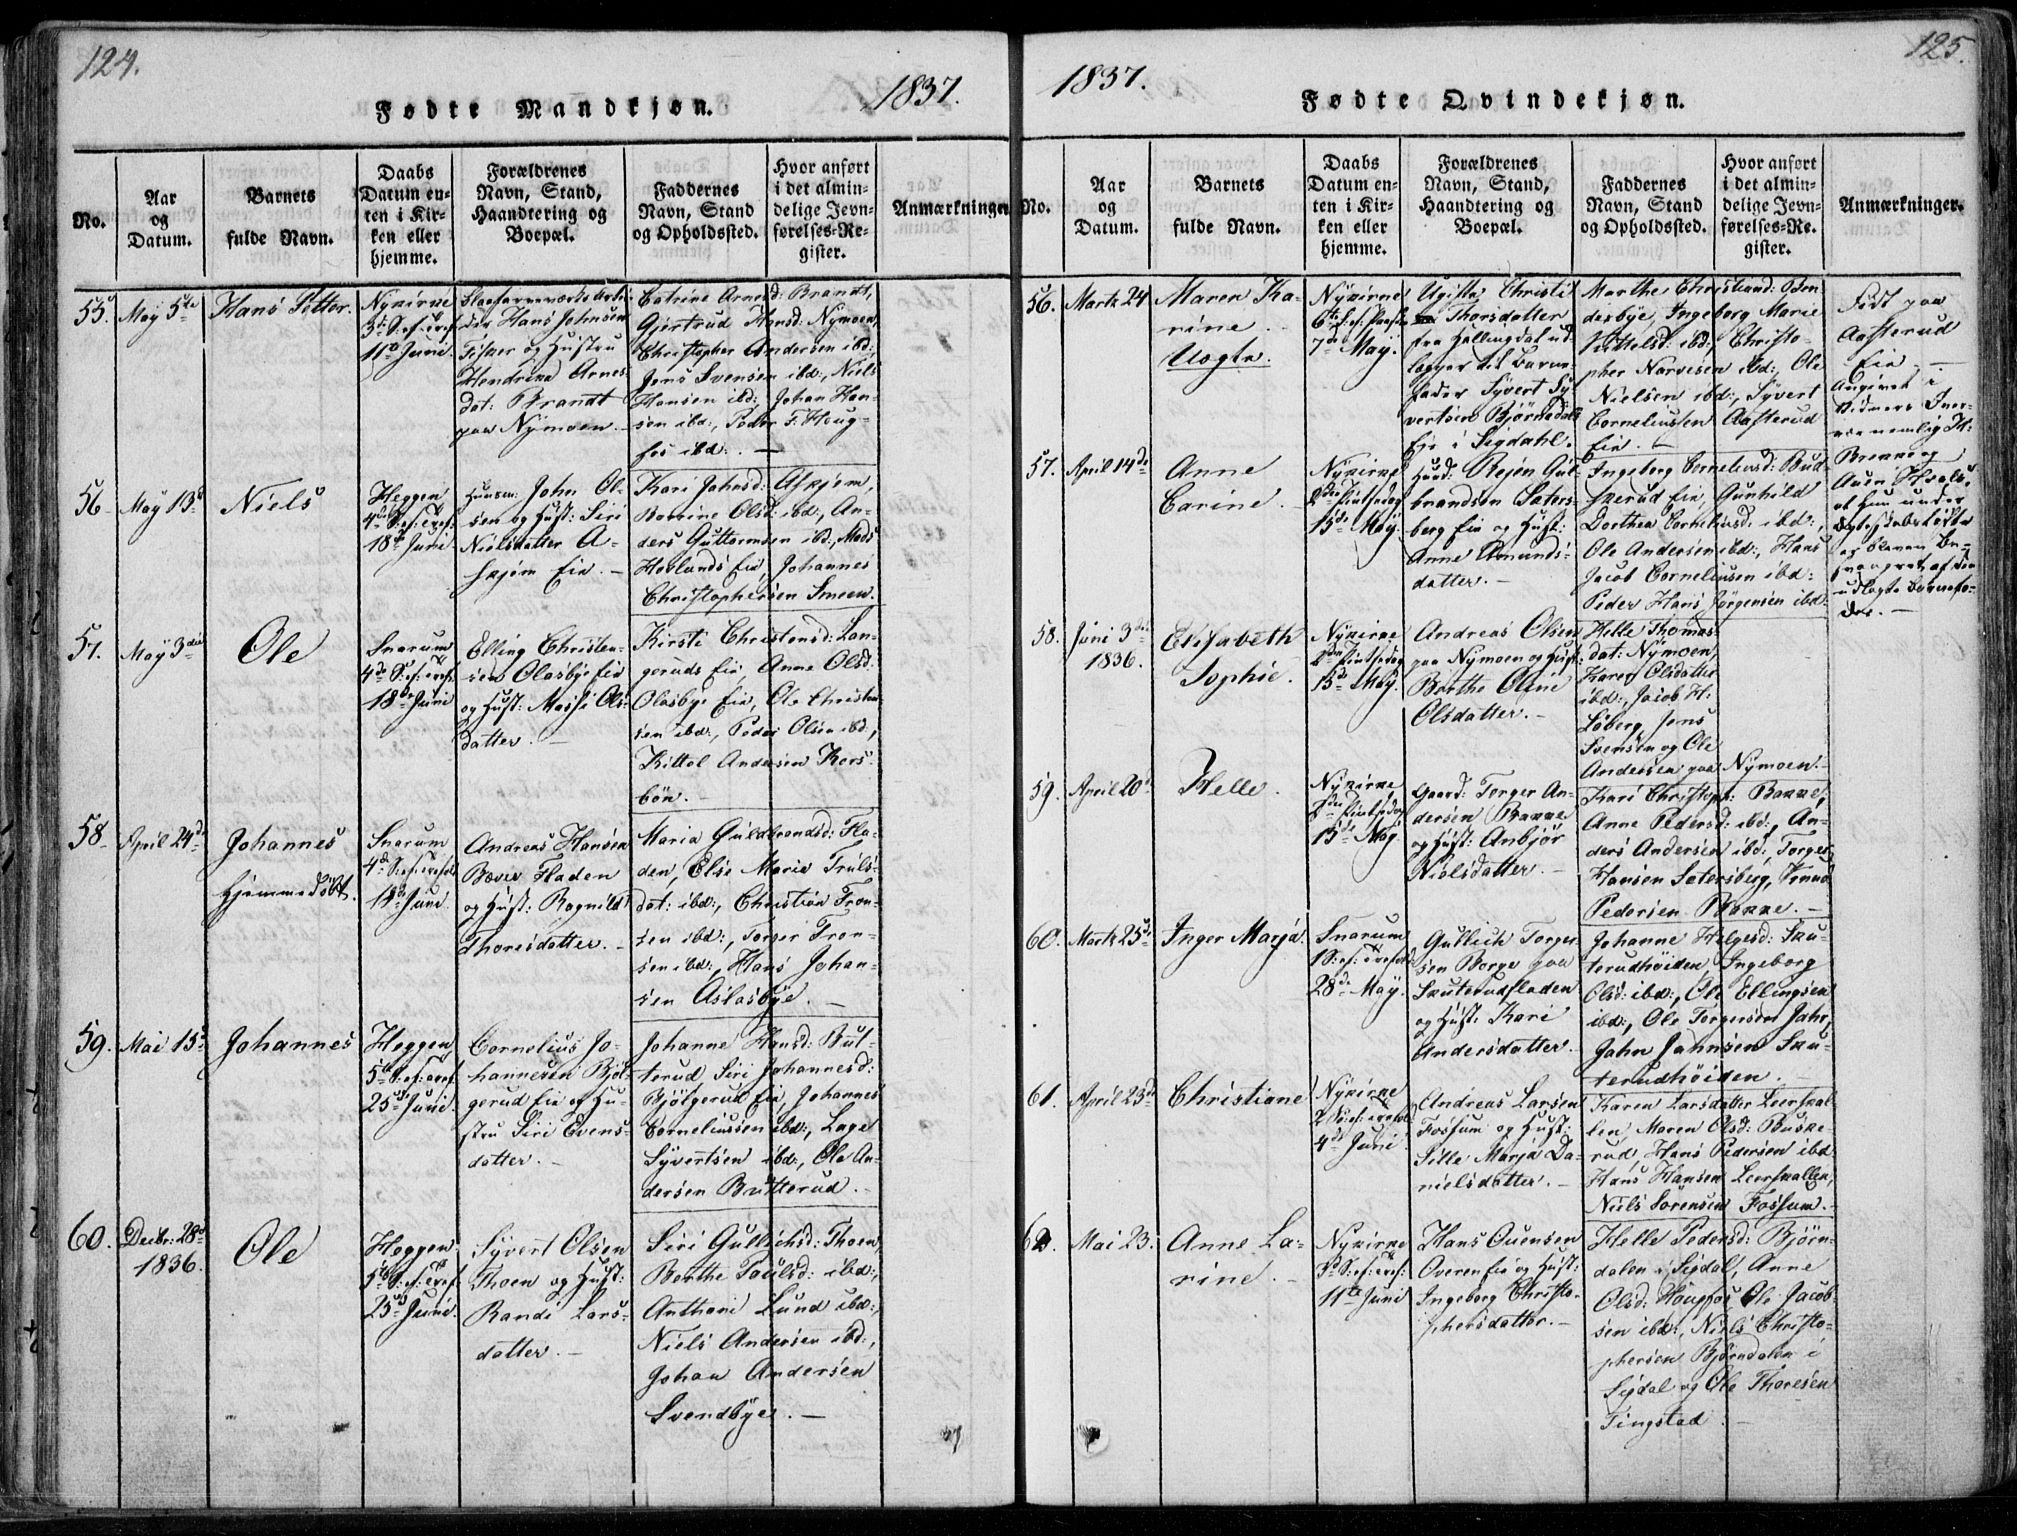 124.
1837.
Fødte Mandkjøn.
No.
Aar
og
Datum.
Barnets
fulde Navn.
Daabs
Datum en-
ten i Kir-
ken eller
hjemme.
Forældrenes
Navn, Stand,
Haandtering og
Boepæl.
Faddernes
Navn, Stand
og Opholdssted.
Hvor anført
i det almin-
delige Jevn-
førelses-Re-
gister.
Anmærkninger
55. May 5te
Hans Petter.
Nykirke
11te Juni
der Hans Johnsen
Fisker og Hustru
Hendrika Arnes-
dat: Brandt
paa Nymoen.
Catrine Arnesd: Brandt,
Gjertrud Hansd: Nymoen,
Christopher Andersen ibd:,
Jens Svensen ibd:, Niels
Hansen ibd:, Johan Han-
sen ibd:, Peder F. Houg-
fos ibd:. —
56. May 13d
Niels
Heggen
18de Juni
Huusm: John Ol-
sen og Hust: Siri
Nielsdatter A-
skjem Eie. —
Kari Johnsd: Askjem,
Berrine Olsd: ibd:, An-
ders Guttormsen ibd:, Mads
Hovlands Eie, Johannes
Christophersen Smeen.
57. May 3die
Ole
Snarum
18de Juni
Elling Christen-
sen Olasbye Eie
og Hust: Marthe Ols-
datter. —
Kirsti Christensd: Lan-
geruds Eie, Anne Olsd:
Olasbye Eie, Ole Christen-
sen ibd:, Peder Olsen ibd:,
Kittel Andersen Kors-
bøn. —
58. April 24de
Johannes
Hjemmedøbt.
Snarum
18de Juni
Andreas Hansen
Bæver Fladen
og Hust: Ragnild
Thoresdatter. —
Maria Guldbrandsd: Fla-
den, Else Marie Truls-
dat: ibd:, Christian Tron-
sen ibd:, Torger Tron-
sen ibd:, Hans Johan-
sen Aslasbye. —
59. Mai 15d
Johannes
Heggen
25de Juni.
Cornelius Jo-
hannesen Bjøl-
gerud Eie og Hu-
stru Siri Evens-
datter. —
Johanne Hansd: But-
terud, Siri Johannesd:
Bjølgerud Eie, Johannes
Corneliussen ibd:, Lage
Syvertsen ibd:, Ole An-
dersen Butterud. —
60. Decbr: 28de
1836.
Ole
Heggen
25de Juni
Syvert Olsen
Thoen og Hust:
Randi Lars-
datter. —
Siri Gullichsd: Thoen,
Berthe Poulsd: ibd:,
Anthoni Lund ibd:,
Niels Andersen ibd:,
Johan Andersen
Svendbye. —
125.
1837.
Fødte Qvindekjøn.
No.
Aar
og
Datum.
Barnets
fulde Navn.
Daabs
Datum en-
ten i Kir-
ken eller
hjemme.
Forældrenes
Navn, Stand,
Haandtering og
Boepæl.
Faddernes
Navn, Stand
og Opholdssted.
Hvor anført
i det almin-
delige Jevn-
førelses-Re-
gister.
Anmærkninger.
56. Marts 24
Maren Ka-
rine.
Uægte.
Nykirke
7de May.
Ugifte Christi
Thorsdatter
fra Hallingdal ud-
lægger til Barne-
fader Syvert Sy-
vertsen Bjørnedals
Eie i Sigdahl.
Marthe Christiansd: Ben-
dexbye, Ingeborg Marie
Kittelsd: ibd:, Christo-
pher Narvesen ibd:, Ole
Nielsen ibd:, Syvert
Corneliussen Aasterud
Eie. —
Født paa
Aasterud
Eie —
Angivet i
57. April 14de
Anne
Carine.
Nykirke
2den Pintsedag
15de May.
Huusm: Rejer Gul-
brandsen Sæters-
berg Eie og Hust:
Anne Amunds-
datter. —
Ingeborg Corneliusd: Bud-
skerud Eie, Gunhild
Dorthea Corneliusd: ibd:,
Ole Andersen ibd:, Hans
Jacob Corneliussen ibd:
Peder Hans Jørgensen ibd:
58. Juni 3die
1836.
Elisabeth
Sophie.
Nykirke
2den Pintsedag
15de May.
Andreas Olsen
paa Nymoen og Hust:
Berthe Oline
Olsdatter. —
Helle Thomas-
dat: Nymoen,
Karen Olsdatter
ibd:, Jacob H:
Løberg, Jens
Svensen og Ole
Andersen paa Nymoen. —
59. April 20de
Helle.
Nykirke
2den Pintsedag
15de May
Gaard: Torger An-
dersen Bakke
og Hust: Anbjør
Nielsdatter. —
Kari Christoph: Bakke,
Anne Pedersd: ibd:, An-
ders Andersen ibd:, Torger
Hansen Sætersberg, Knud
Pedersen Bakke. —
60. Marts 25de
Inger Marja.
Snarum
28de May.
Gullick Torger-
sen Borge paa
Skuterudfladen
og Hust: Kari
Andersdatter.
Johanne Helgesd: Sku-
terudhøiden, Ingeborg
Olsd: ibd:, Ole Ellingsen
ibd:, Ole Torgersen Jahr,
John Johnsen Sku-
terudhøiden. —
61. April 23de
Christiane
Nykirke
4de Juni
Andreas Larsen
Fossum og Hust:
Sille Marja Da-
nielsdatter. —
Karen Larsdatter Leerskal-
len, Maren Olsd: Buske-
rud, Hans Pedersen ibd:
Hans Hansen Leerskallen,
Niels Sørensen Fossum. —
62. Mai 23.
Anne La-
rine. —
Nykirke
11te Juni
Hans Evensen
Overen Eie og Hust:
Ingeborg Christo-
phersdatter. —
Helle Pedersd: Bjørn-
dalen i Sigdal, Anne
Olsd: Hougfos, Ole Jacob-
sen ibd:, Niels Christo-
phersen Bjørndalen i
Sigdal og Ole Thoresen
Tingstad. —